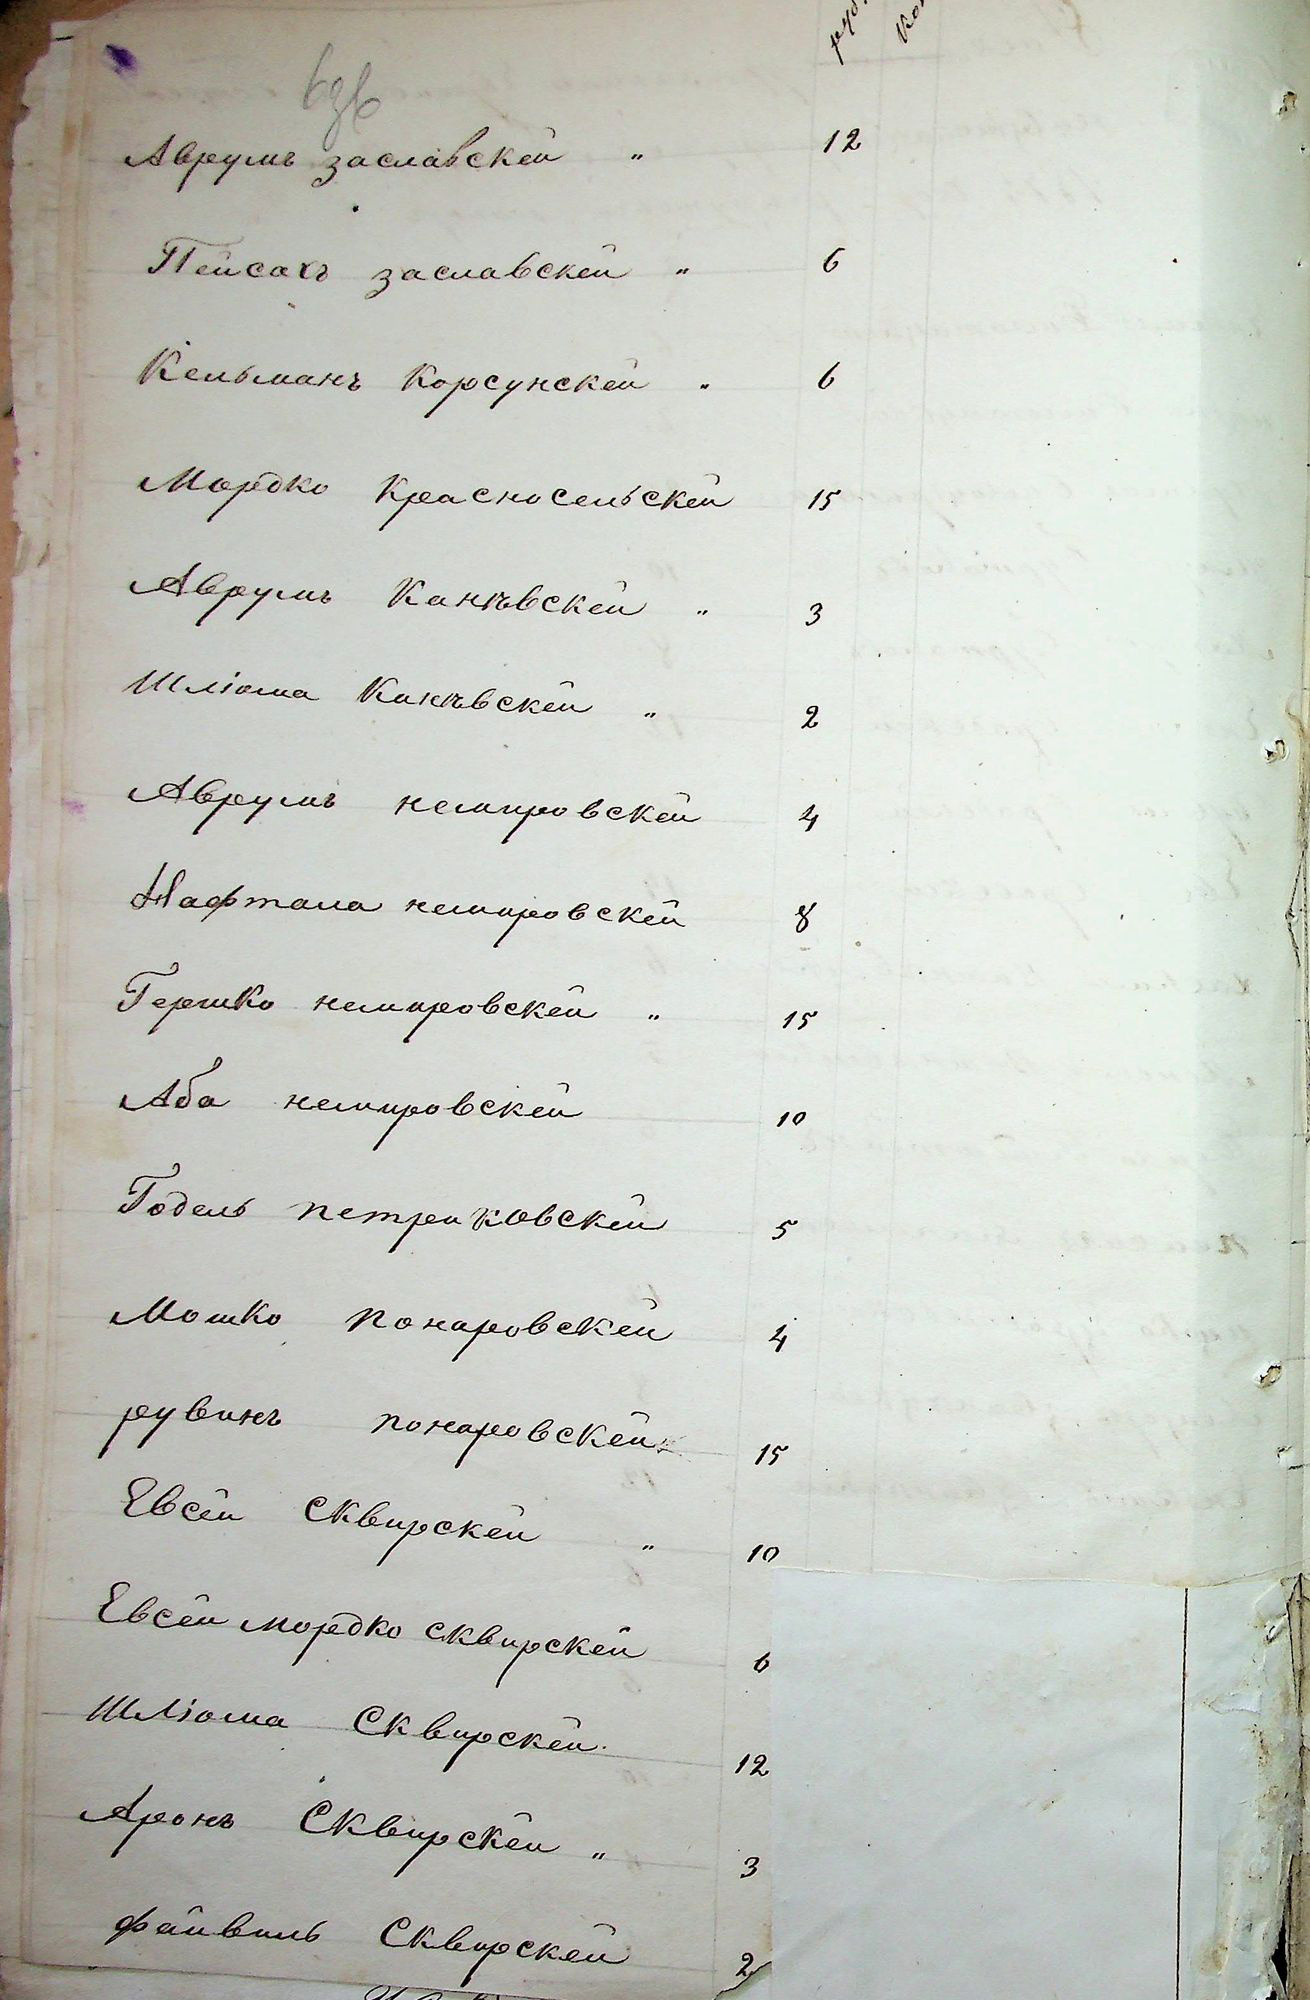 руб. коп
Аврумъ заславскей " 12
Пейсахъ заславскей " 6
Кельманъ Корсунскей " 6
Мордко Красносельскей 15
Аврумъ Канѣвскей " 3
Шліома Канѣвскей " 2
Аврумъ немировскей 4
Нафтала немировскей 8
Гершко немировскей " 15
Аба немировскей 10
Годель петриковскей 5
Мошко понаровскей 4
рувинъ понаровскей 15
Евсей Сквирскей " 10
Евсей мордко сквирскей 6
Шліома Сквирскей 12
Аронъ Сквирскей " 3
файвиль Сквирскей 2